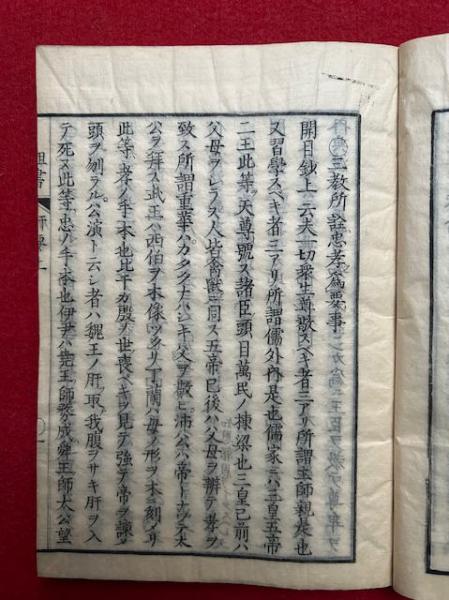 三教所詮忠孝爲要事
開目鈔上ニ云夫一切衆生ノ尊敬スベキ者三アリ所謂主師親是也
又習學スベキ者三アリ所謂儒外內是也儒家ニハ三皇五帝
三王此等ヲ天尊ト號ス諸臣ノ頭目萬民ノ棟梁也三皇已前ハ
父母ヲシラズ人皆禽獸ニ同ス五帝已後ハ父母ヲ辨テ孝ヲ
致ス所謂重華ハカタクナハシキ父ヲ敬ヒ沛公ハ帝トナツテ太
公ヲ拜ス武王ハ西伯ヲ木像ニツクリ丁蘭ハ母ノ形ヲ木ニ刻メリ
此等ハ孝ノ手本也比干ハ殷ノ世ノ喪ベキヲ見テ強テ帝ヲ諫メ
頭ヲ刎ラル公演ト云シ者ハ魏王ノ肝ヲ取テ我腹ヲサキ肝ヲ入
テ死ス此等ハ忠ノ手本也伊尹ハ堯王ノ師務成ハ舜王ノ師太公望